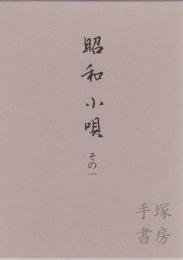 昭和小唄
その一
手塚
書房